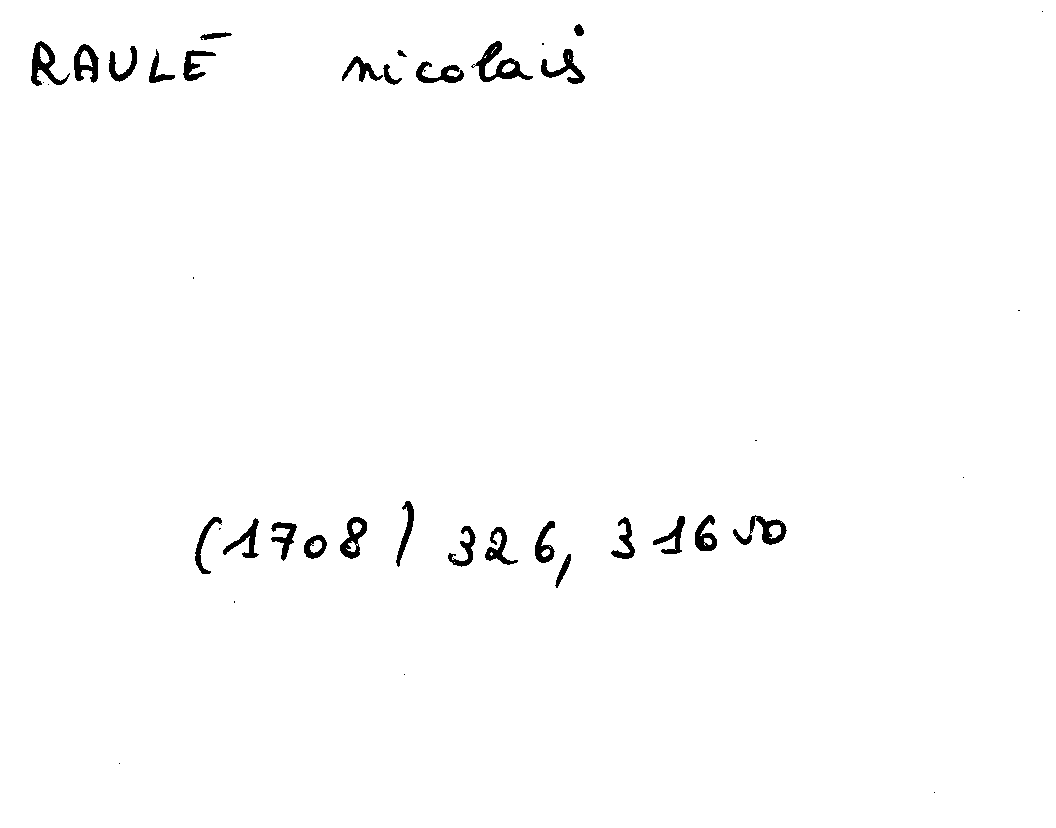 RAULÉ nicolaïs
(1708) 326, 316 vo